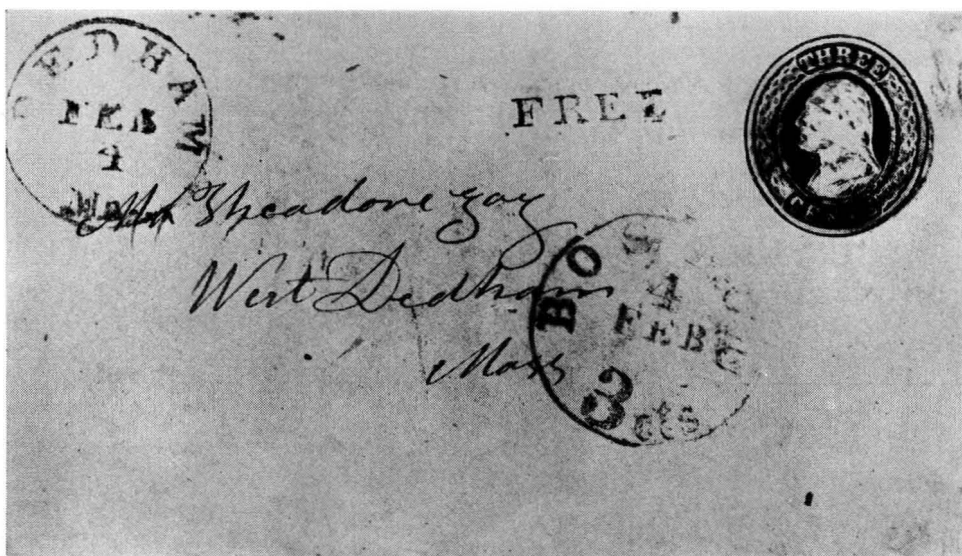 DEDHAM
FEB
4
FREE
THREE
CENTS
Mr Theadore Gay
West Dedham
Mass
BOSTON
4
FEB
3 cts